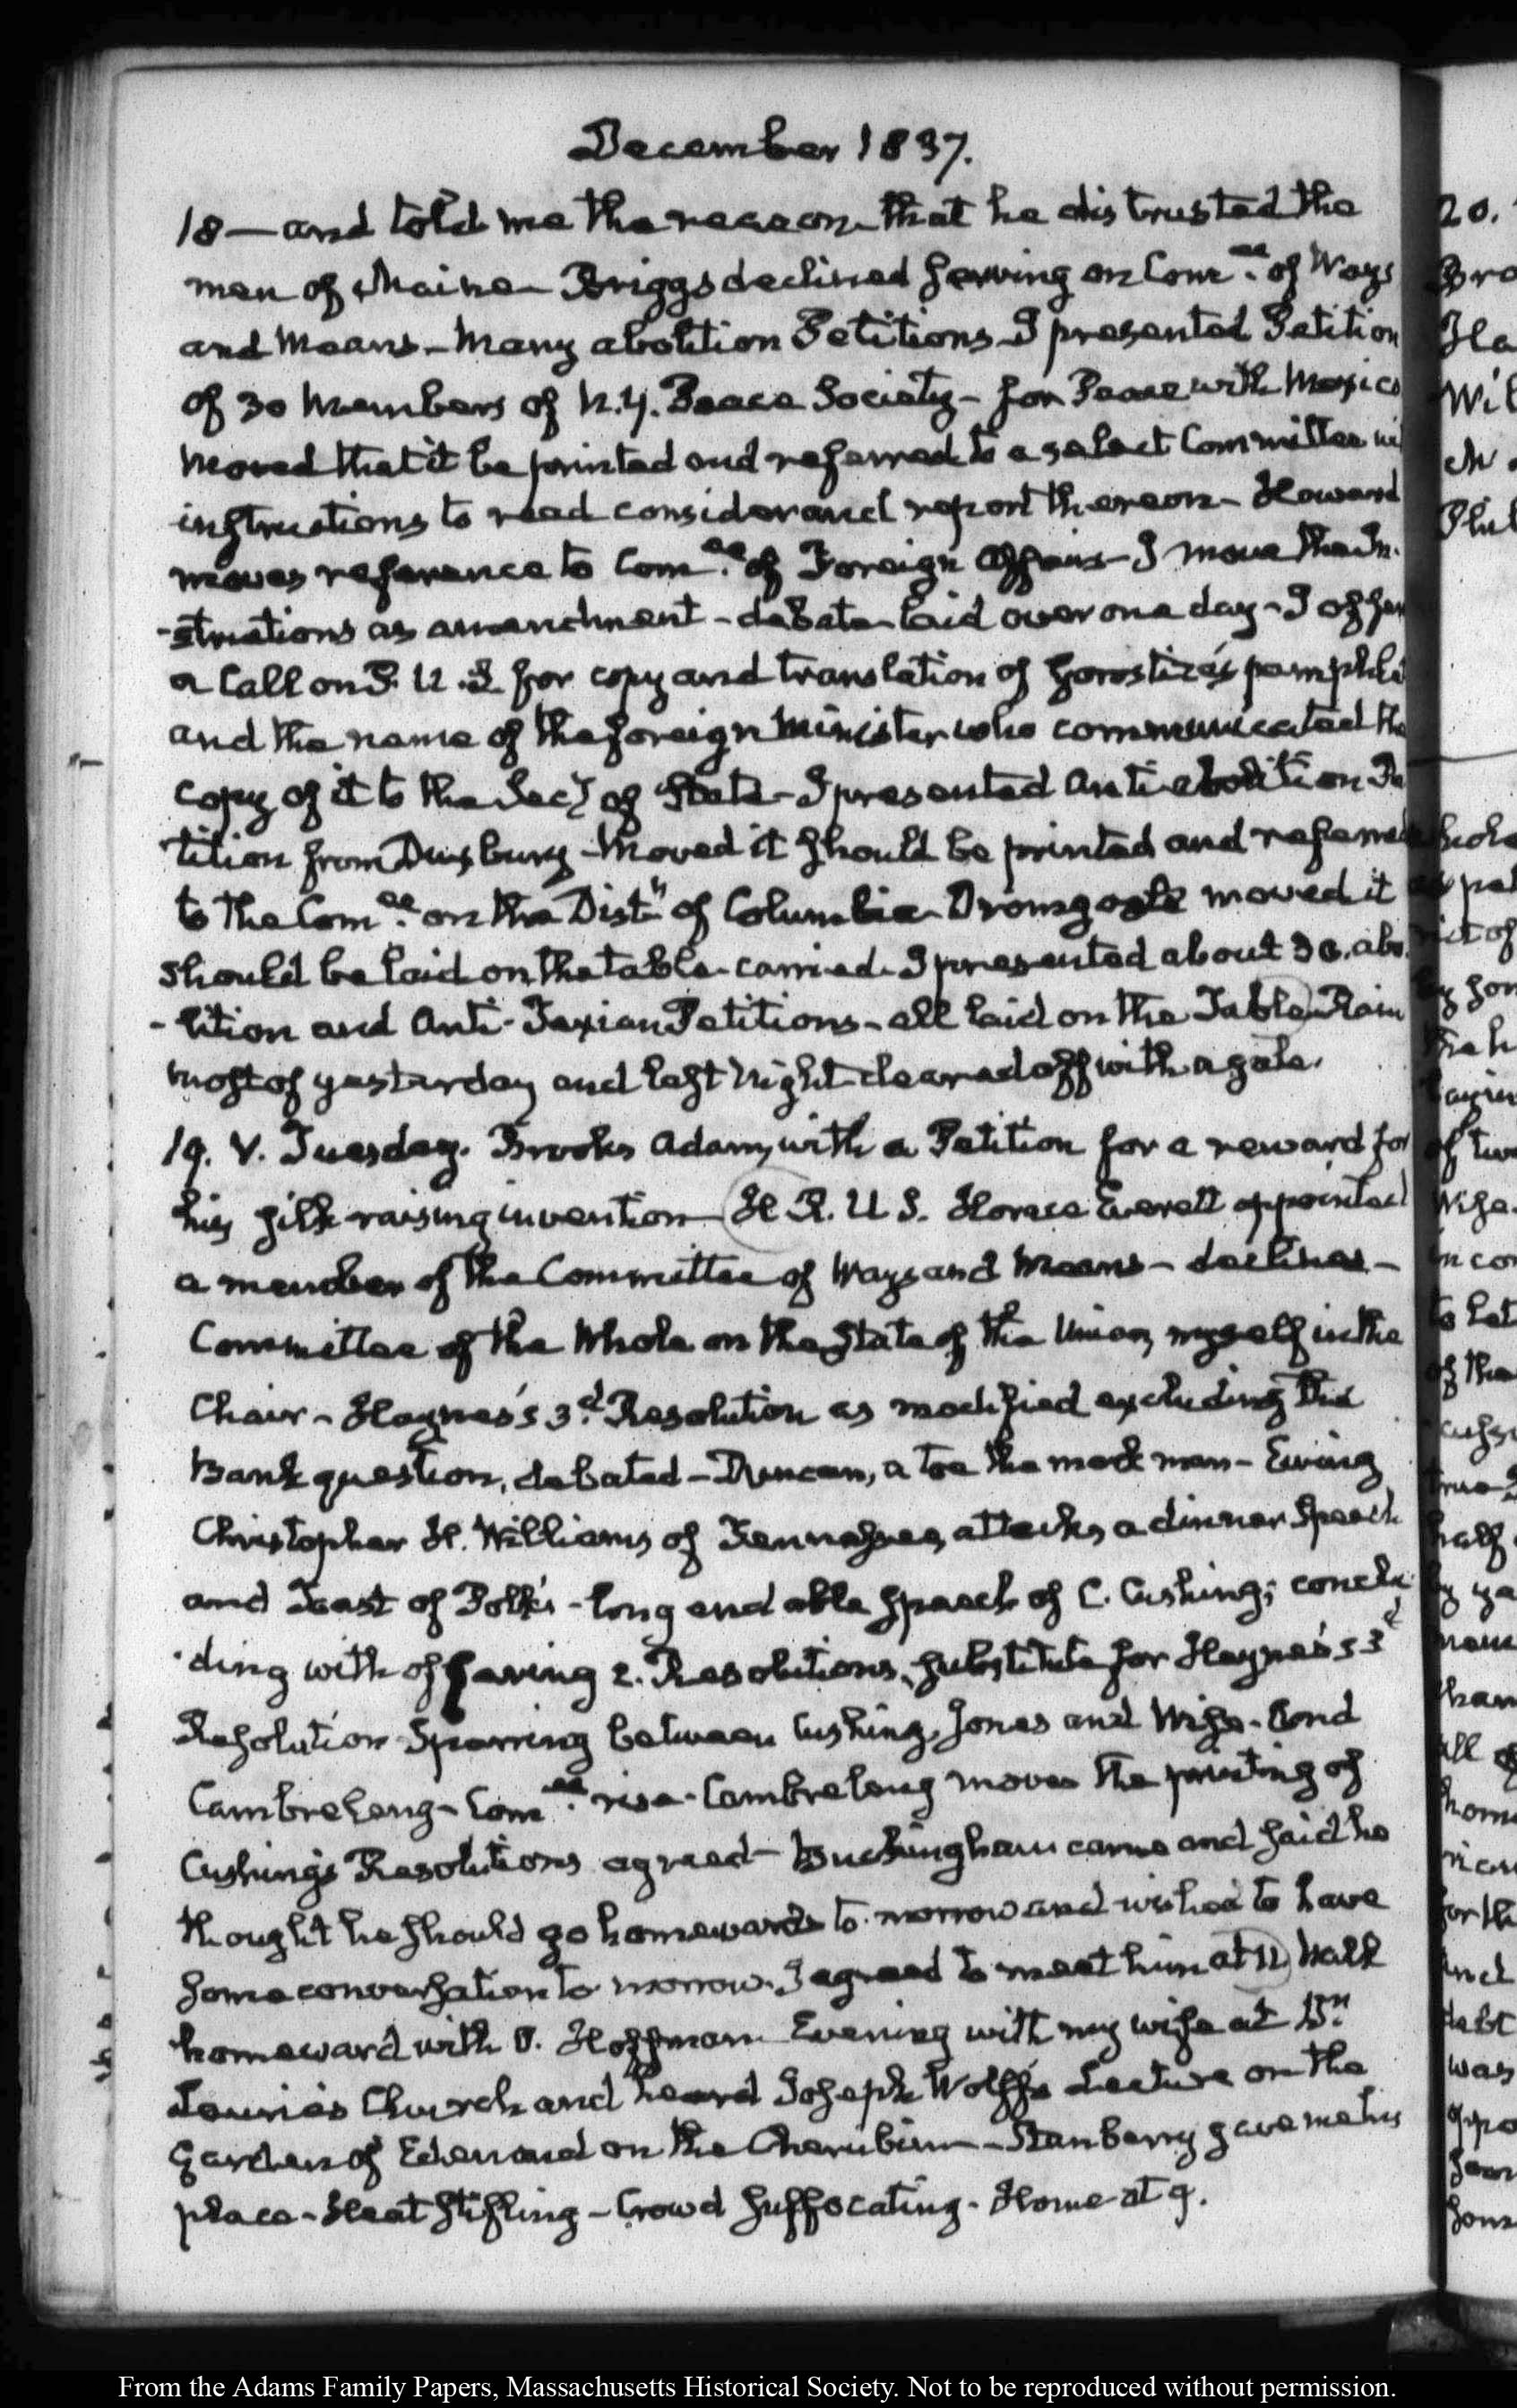 December 1837.
18 — and told me the reason that he distrusted the
men of Maine — Briggs declined serving on Com.ee of Ways
and Means — Many abolition Petitions — I presented Petition
of 30 Members of N.Y. Peace Society — for Peace with Mexico
moved that it be printed and referred to a select Committee wi
instructions to read consider and report thereon — Howard
moves reference to Com.ee of Foreign Affairs — I move the In-
-structions as amendment — debate — laid over one day — I offer
a Call on P. U. S. for copy and translation of Gorostiza's pamphlet
and the name of the foreign Minister who communicated the
copy of it to the Secy of State — I presented Anti abolition Pe
tition from Duxbury — Moved it should be printed and referred
to the Com.ee on the Dist. of Columbia — Dromgoole moved it
should be laid on the table — carried — I presented about 30. abo
-lition and Anti-Texian Petitions — all laid on the Table Rain
most of yesterday and last Night cleared off with a gale.
19. V. Tuesday. Brooks Adam, with a Petition for a reward for
his silk raising invention — H. R. U. S. Horace Everett appointed
a member of the Committee of Ways and Means — declines —
Committee of the Whole on the State of the Union, myself in the
Chair — Haynes's 3.d Resolution as modified excluding the
Bank question, debated — Duncan, a toe the mark man — Ewing
Christopher H. Williams of Tennessee, attacks a dinner Speech
and Toast of Polk's — long and able speech of C. Cushing; conclu
-ding with offering 2. Resolutions, substitute for Haynes's 3d
Resolution — Sparring between Cushing, Jones and Wise — And
Cambreleng — Com.ee rise — Cambreleng moves the printing of
Cushing's Resolutions agreed — Buckingham came and said he
thought he should go homewards to-morrow and wished to have
some conversation to morrow. I agreed to meet him at 12 Walk
homeward with O. Hoffman Evening with my wife at Dr.
Laurie's Church and heard Joseph Wolff's Lecture on the
Garden of Eden and on the Cherubim — Stanberry gave me his
place — Heat stifling — Crowd suffocating — Home at 9.
From the Adams Family Papers, Massachusetts Historical Society. Not to be reproduced without permission.